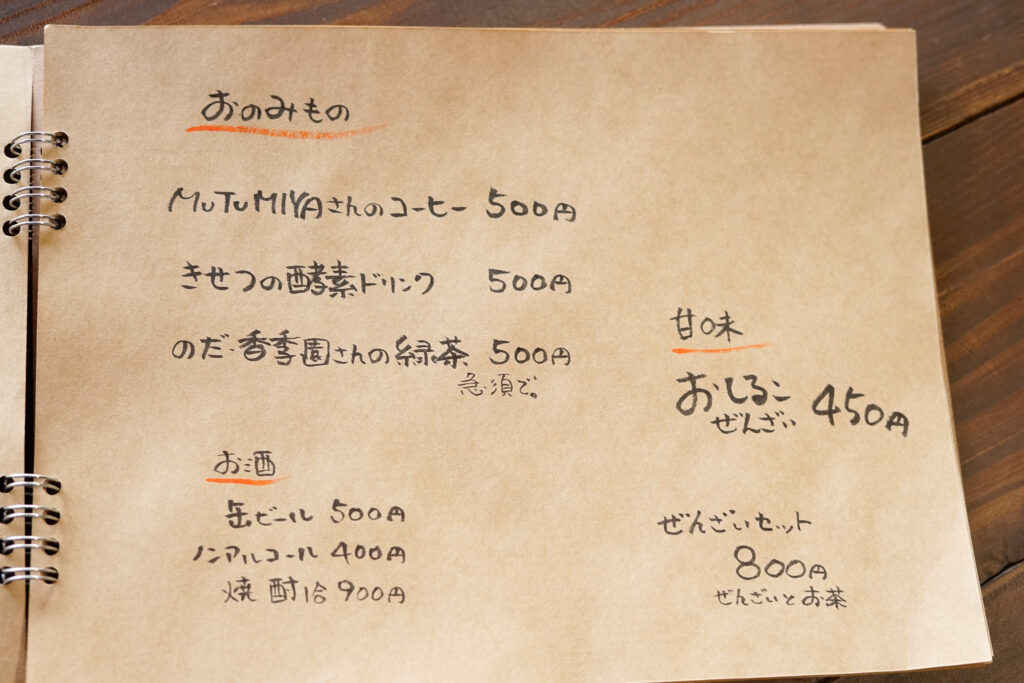 おのみもの
MUTUMIYAさんのコーヒー 500円
きせつの酵素ドリンク 500円
のだ・香季園さんの緑茶 500円
急須で。
お酒
缶ビール 500円
ノンアルコール 400円
焼酎1合 900円
甘味
おしるこ 450円
ぜんざい
ぜんざいセット
800円
ぜんざいとお茶